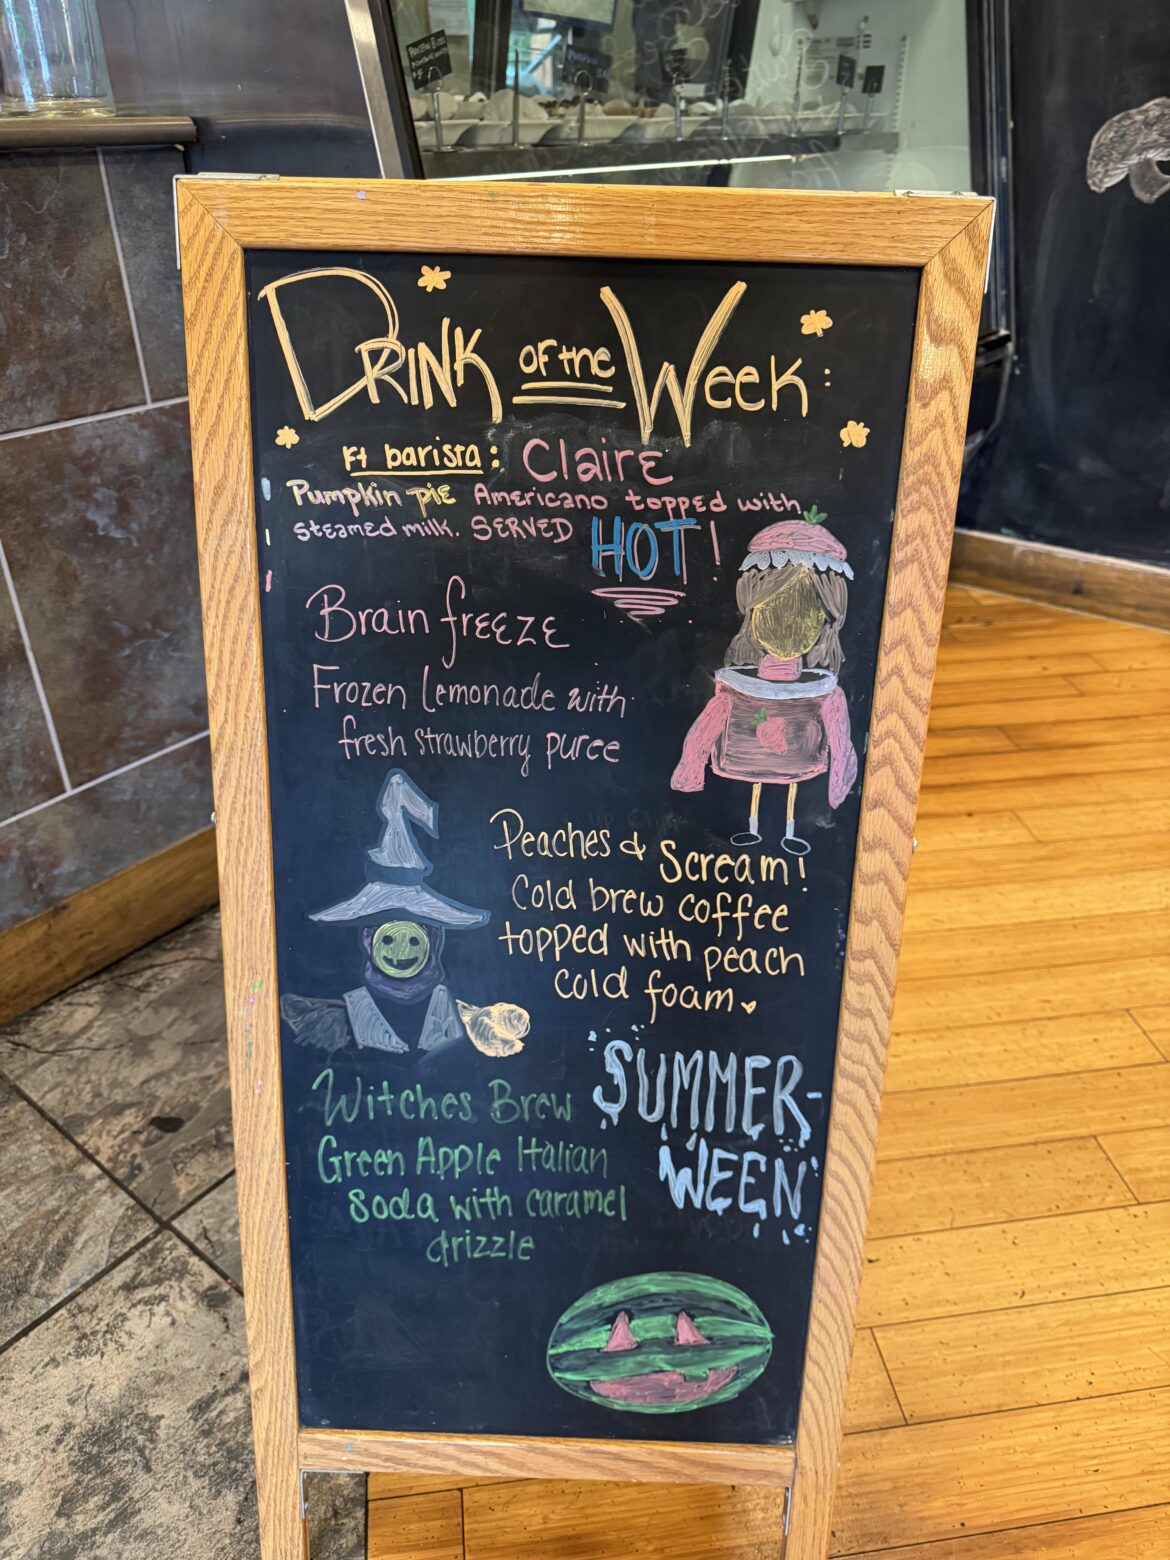 DRINK OF the WEEK:
Ft barista: Claire
Pumpkin pie Americano topped with
steamed milk. SERVED HOT!
Brain freeze
Frozen Lemonade with
fresh strawberry puree
Peaches & Scream!
Cold brew coffee
topped with peach
cold foam
Witches Brew
Green Apple Italian
Soda with caramel
drizzle
SUMMER-
WEEN